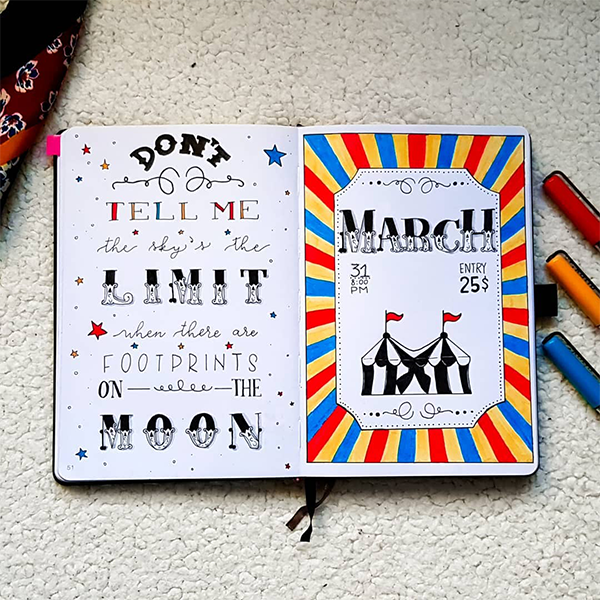 DON'T
TELL ME
the sky's the
LIMIT
when there are
FOOTPRINTS
ON THE
MOON
51
MARCH
31
8:00
PM
ENTRY
25$